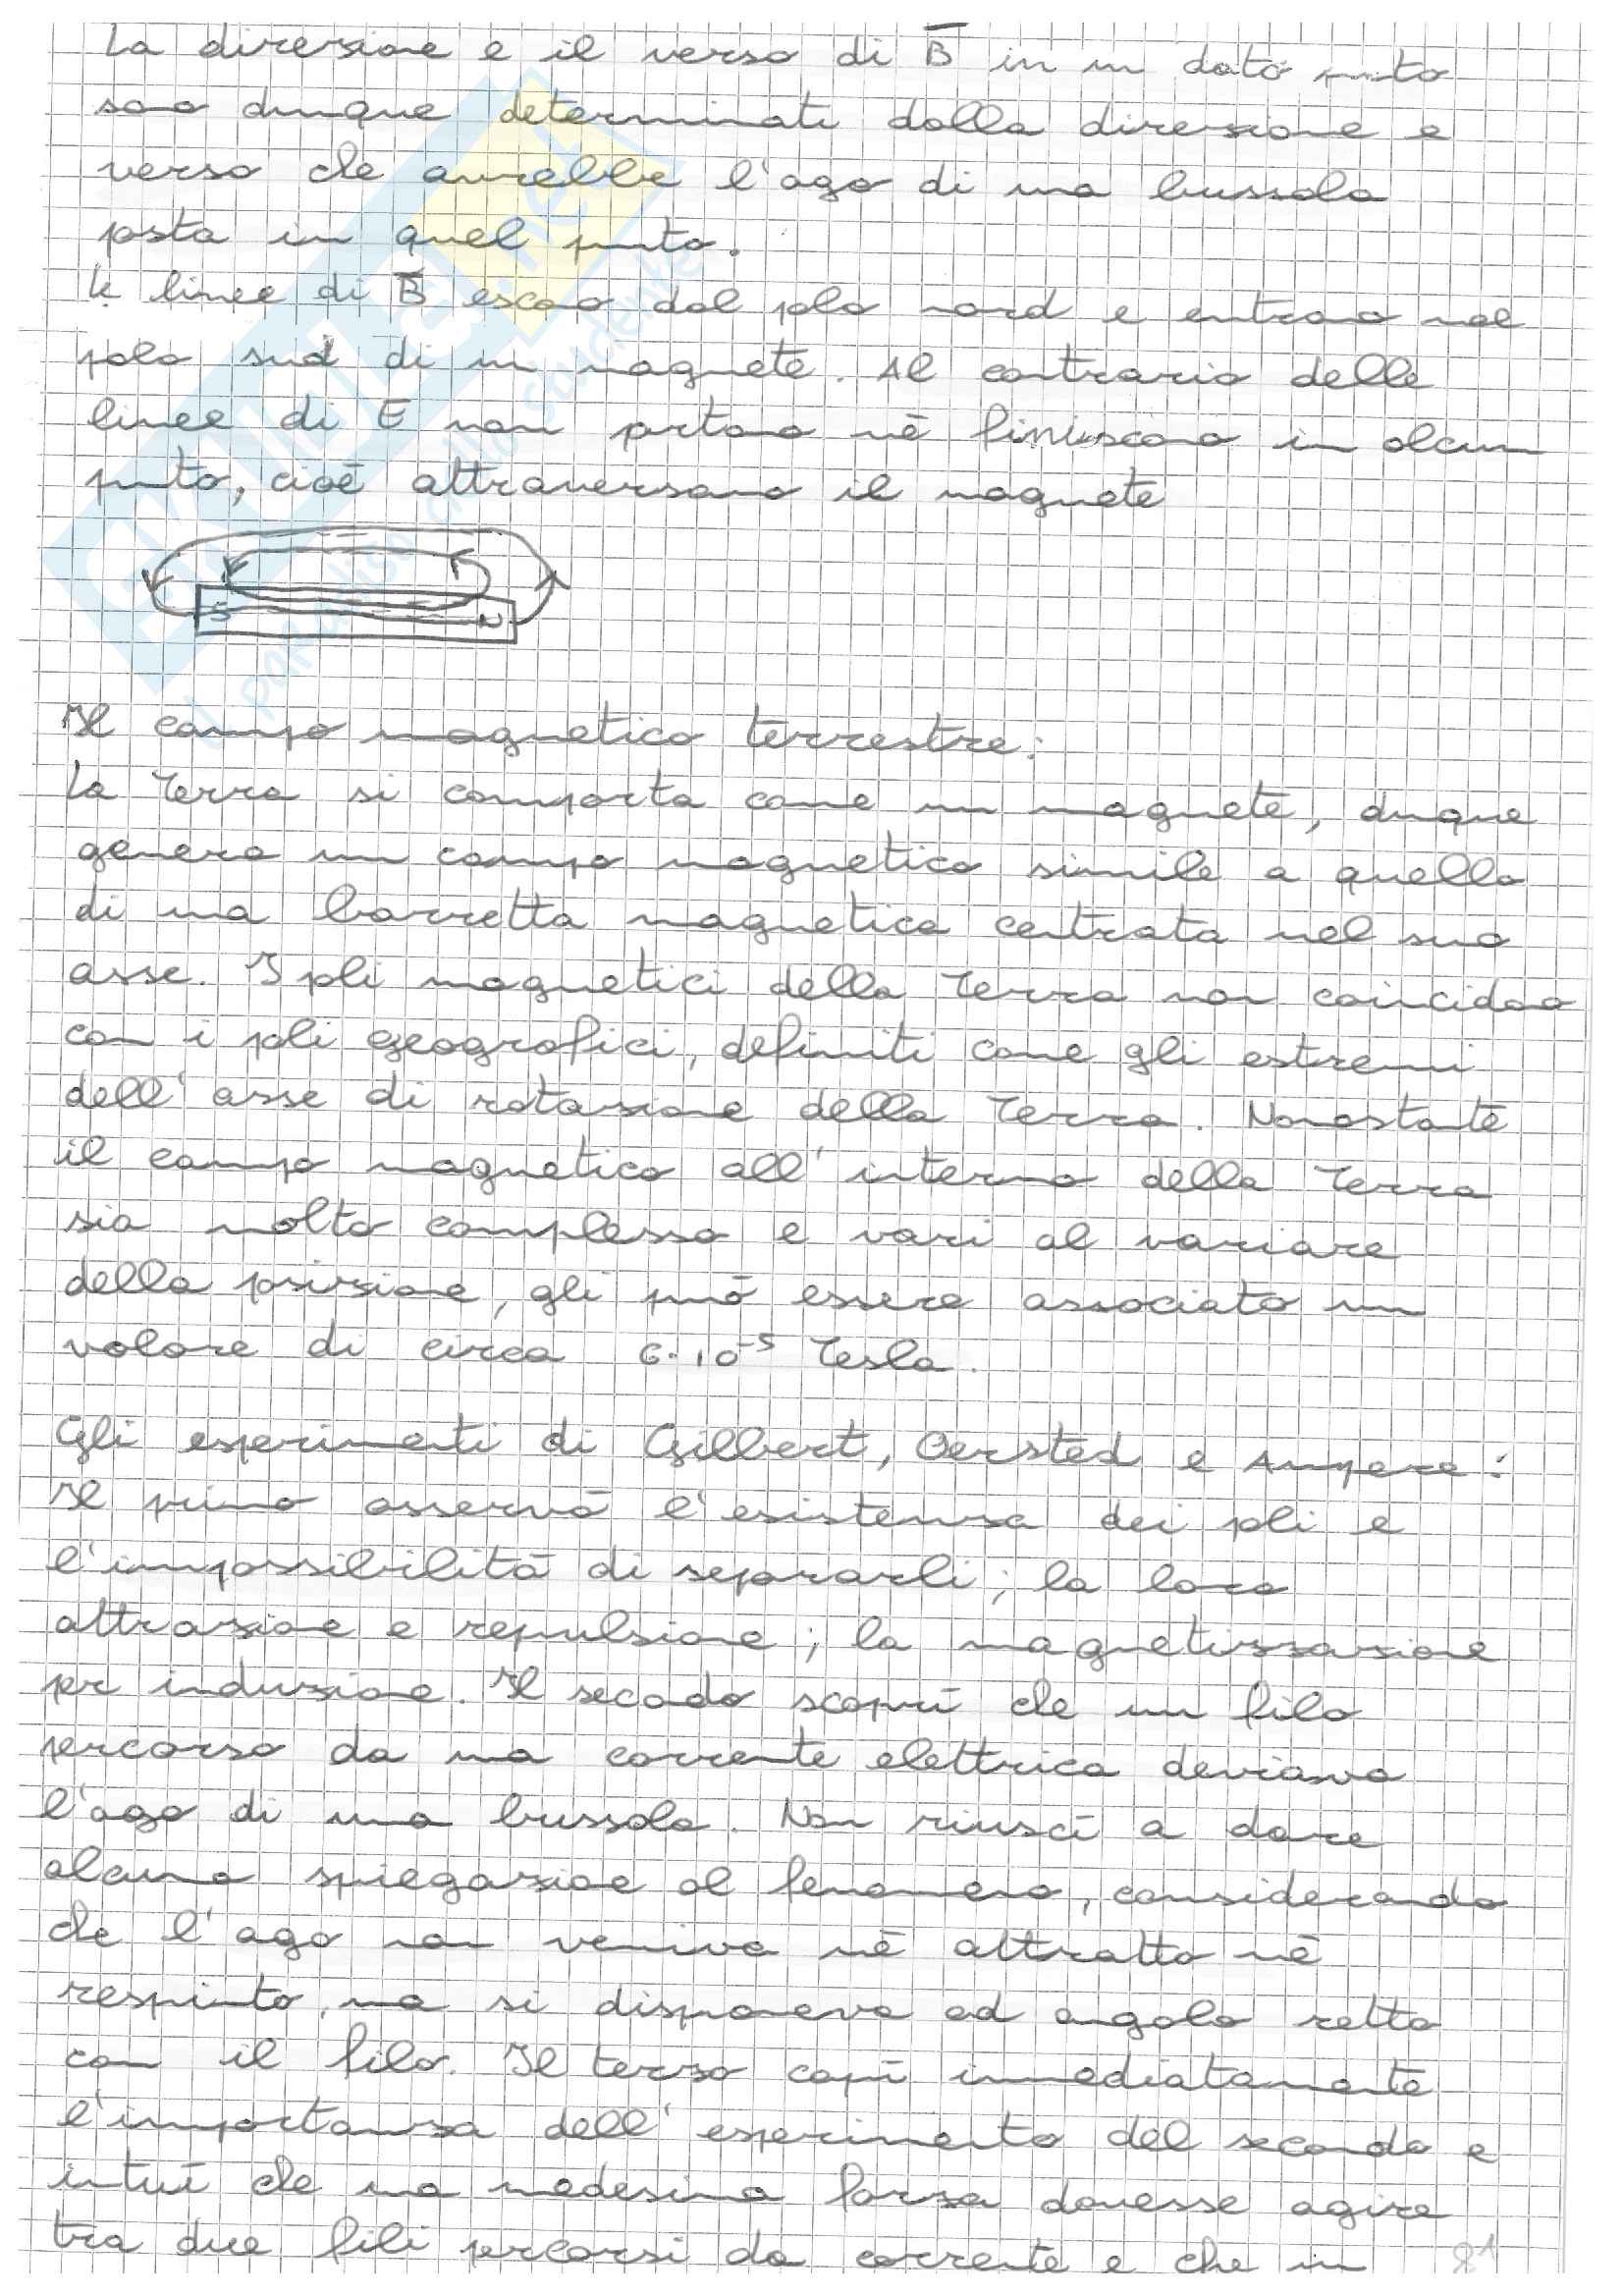 La direzione e il verso di B̅ in un dato punto
sono dunque determinati dalla direzione e
verso che avrebbe l'ago di una bussola
posta in quel punto.
Le linee di B̅ escono dal polo nord e entrano nel
polo sud di un magnete. Al contrario delle
linee di E non partono nè finiscono in alcun
punto, cioè attraversano il magnete
S N
Il campo magnetico terrestre:
La Terra si comporta come un magnete, dunque
genera un campo magnetico simile a quello
di una barretta magnetica centrata nel suo
asse. I poli magnetici della Terra non coincidono
con i poli geografici, definiti come gli estremi
dell'asse di rotazione della Terra. Nonostante
il campo magnetico all'interno della Terra
sia molto complesso e vari al variare
della posizione, gli può essere associato un
valore di circa 6·10⁻⁵ Tesla.
Gli esperimenti di Gilbert, Oersted e Ampere:
Il primo osservò l'esistenza dei poli e
l'impossibilità di separarli; la loro
attrazione e repulsione; la magnetizzazione
per induzione. Il secondo scoprì che un filo
percorso da una corrente elettrica deviava
l'ago di una bussola. Non riuscì a dare
alcuna spiegazione al fenomeno, considerando
che l'ago non veniva nè attratto nè
respinto, ma si disponeva ad angolo retto
con il filo. Il terzo capì immediatamente
l'importanza dell'esperimento del secondo e
intuì che una medesima forza dovesse agire
tra due fili percorsi da corrente e che in
81